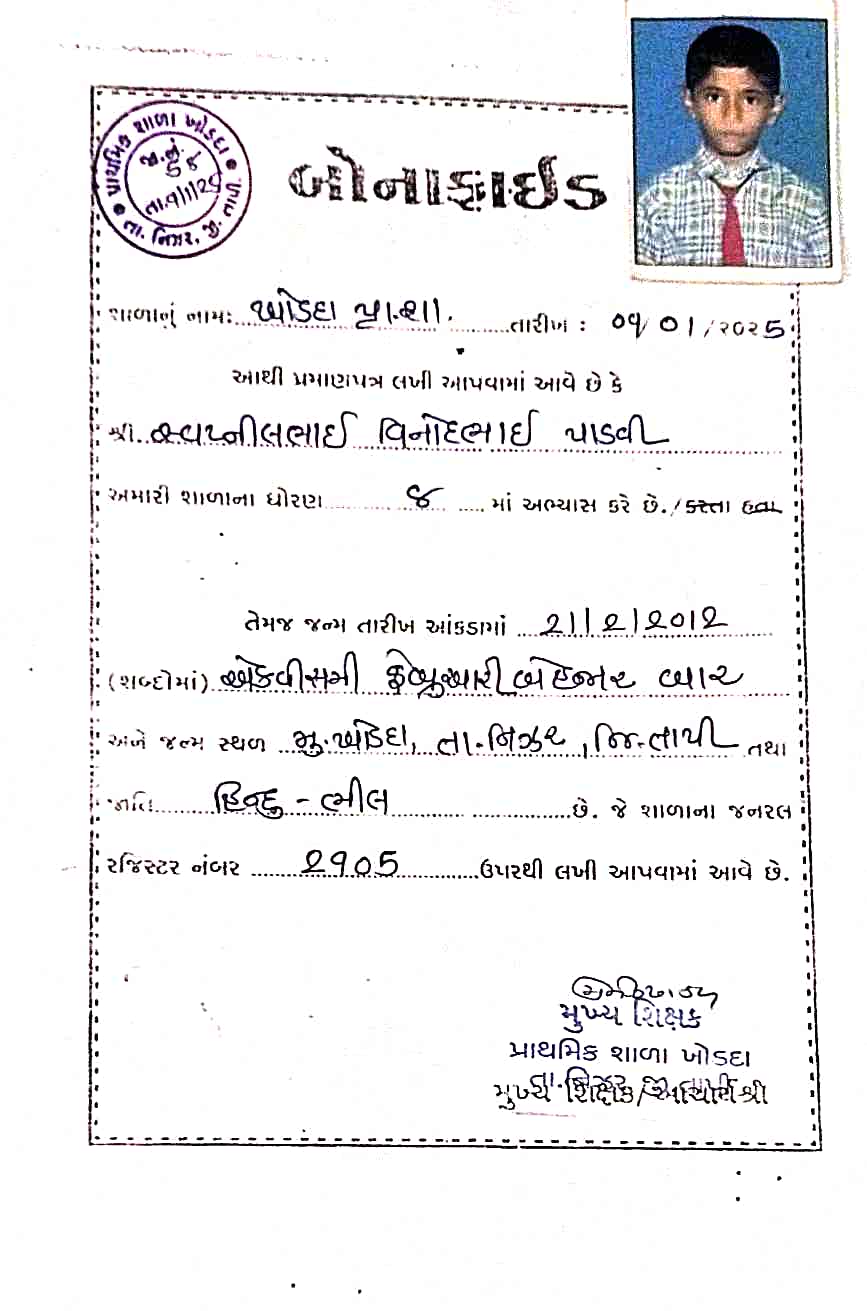 પ્રાથમિક શાળા ખોડદા
જા.નં.
તા. નિઝર, જી. તાપી
બોનાફાઈડ
શાળાનું નામઃ ખોડદા પ્રા.શા. તારીખ : ૦૧/૦1/૨૦૨5
આથી પ્રમાણપત્ર લખી આપવામાં આવે છે કે
શ્રી. સ્વપ્નીલભાઈ વિનોદભાઈ પાડવી
અમારી શાળાના ધોરણ ૭ માં અભ્યાસ કરે છે./કરતા હતા
તેમજ જન્મ તારીખ આંકડામાં 21/2/2012
(શબ્દોમાં) એકવીસમી ફેબ્રુઆરી બે હજાર બાર
અને જન્મ સ્થળ મુ.ખોડદા, તા.નિઝર, જિ.તાપી તથા
જાતિ હિન્દુ - ભીલ છે. જે શાળાના જનરલ
રજિસ્ટર નંબર 2905 ઉપરથી લખી આપવામાં આવે છે.
મુખ્ય શિક્ષક
પ્રાથમિક શાળા ખોડદા
તા. નિઝર જી. તાપી
મુખ્ય શિક્ષક/આચાર્યશ્રી